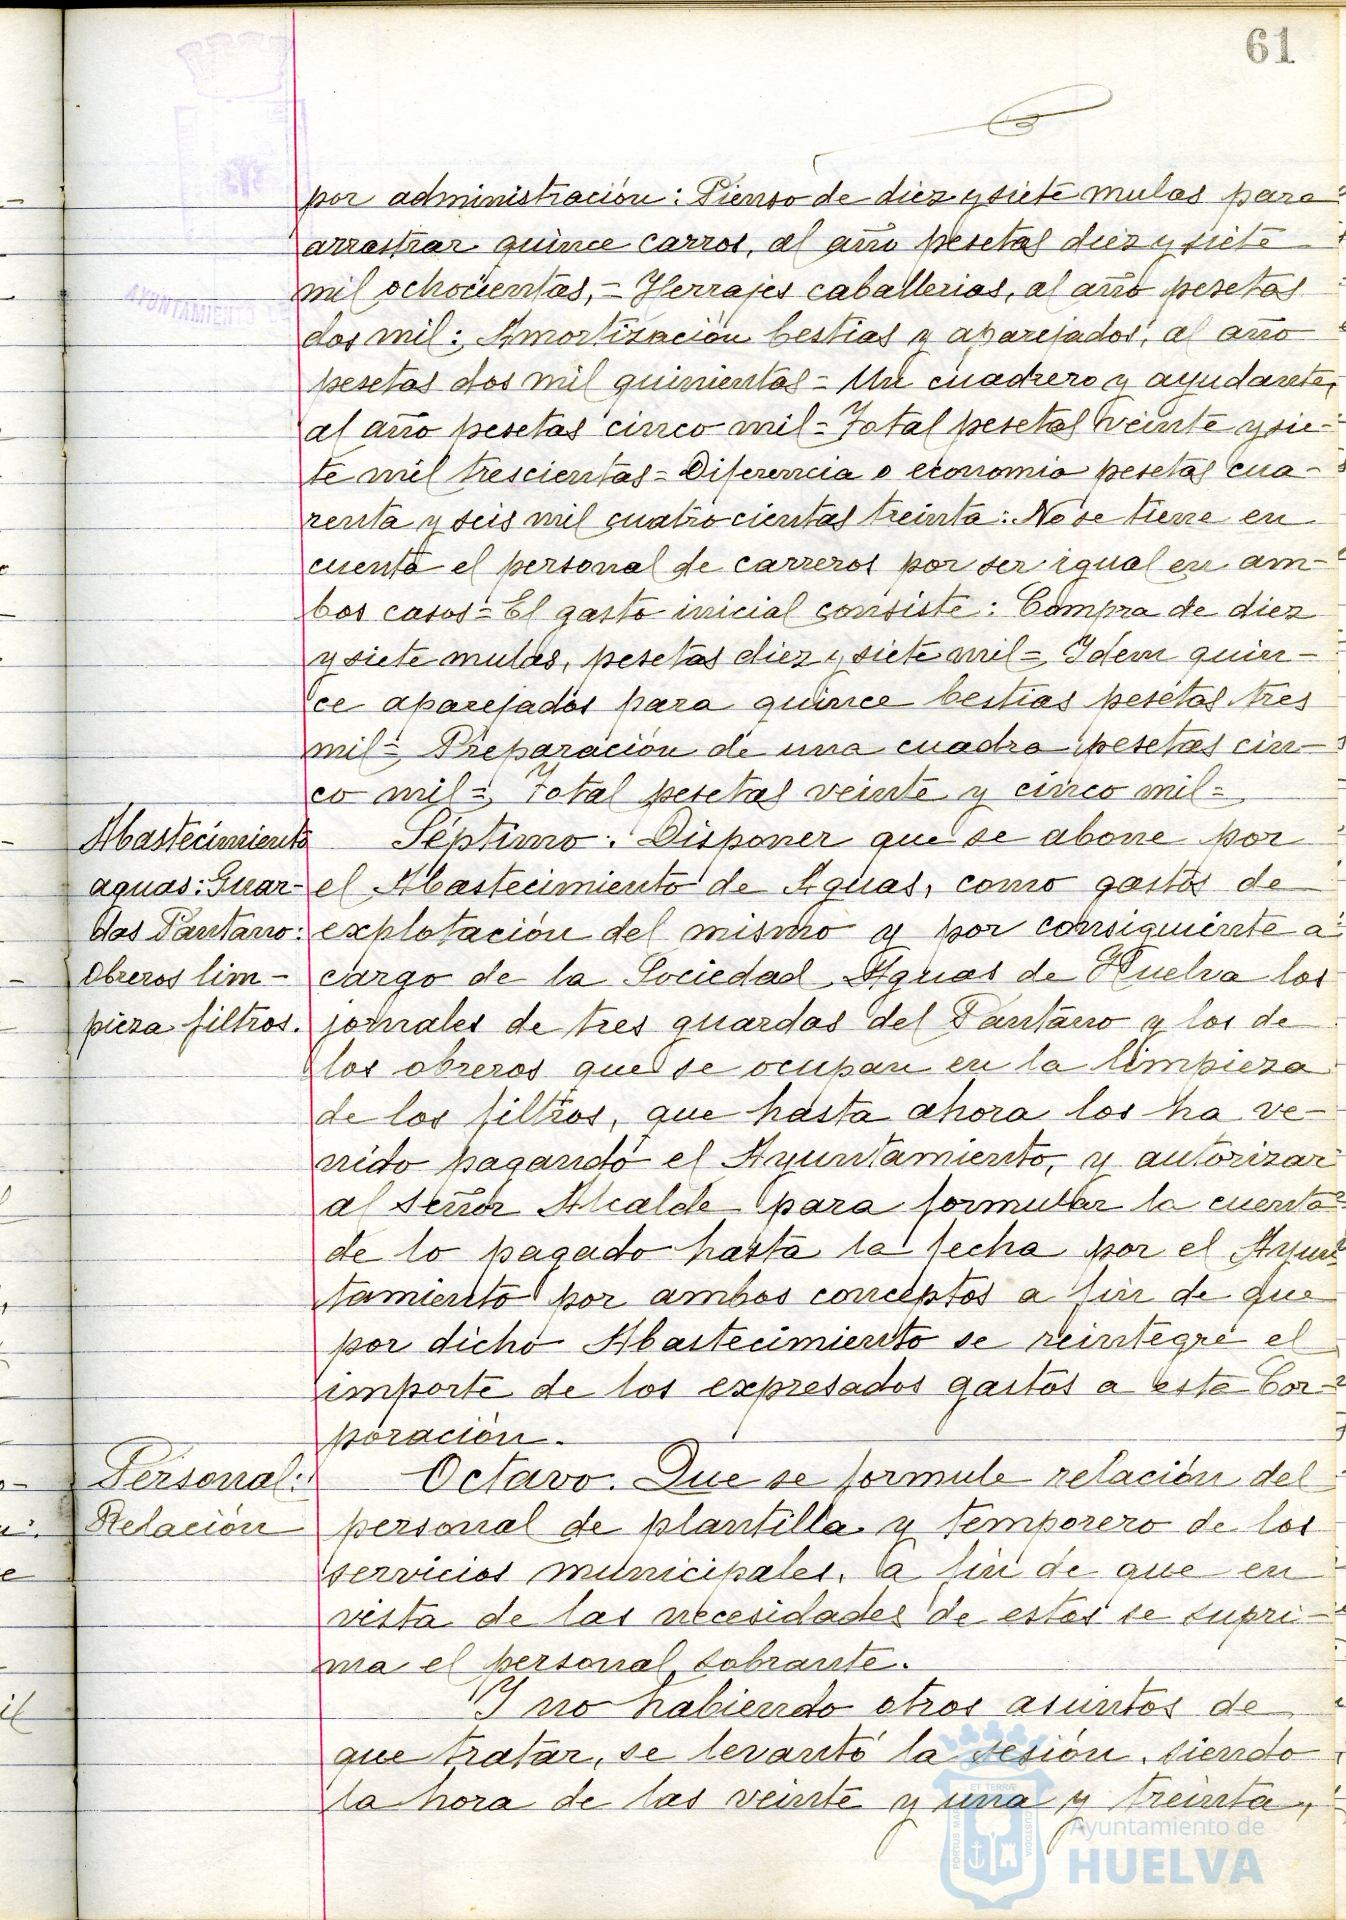 61
por administración: Pienso de diez y siete mulas para
arrastrar quince carros, al año pesetas diez y siete
mil ochocientas,= Herrajes caballerias, al año pesetas
dos mil: Amortización bestias y aparejados, al año
pesetas dos mil quinientas= Un cuadrero y ayudante,
al año pesetas cinco mil= Total pesetas veinte y sie-
te mil trescientas= Diferencia o economia pesetas cua-
renta y seis mil cuatrocientas treinta: No se tiene en
cuenta el personal de carreros por ser igual en am-
bos casos= El gasto inicial consiste: Compra de diez
y siete mulas, pesetas diez y siete mil= Idem quin-
ce aparejados para quince bestias pesetas tres
mil= Preparación de una cuadra pesetas cin-
co mil= Total pesetas veinte y cinco mil=
Abastecimiento
aguas: Guar-
das Pantano:
Obreros lim-
pieza filtros.
Séptimo: Disponer que se abone por
el Abastecimiento de Aguas, como gastos de
explotación del mismo y por consiguiente a
cargo de la Sociedad Aguas de Huelva los
jornales de tres guardas del Pantano y los de
los obreros que se ocupan en la limpieza
de los filtros, que hasta ahora los ha ve-
nido pagando el Ayuntamiento, y autorizar
al señor Alcalde para formular la cuenta
de lo pagado hasta la fecha por el Ayun-
tamiento por ambos conceptos a fin de que
por dicho Abastecimiento se reintegre el
importe de los expresados gastos a esta Cor-
poración.
Personal:
Relación
Octavo. Que se formule relación del
personal de plantilla y temporero de los
servicios municipales, a fin de que en
vista de las necesidades de estos se supri-
ma el personal sobrante.
Y no habiendo otros asuntos de
que tratar, se levantó la sesión, siendo
la hora de las veinte y una y treinta,
AYUNTAMIENTO DE
PORTUS MARIS ET TERRÆ CUSTODIA
Ayuntamiento de
HUELVA